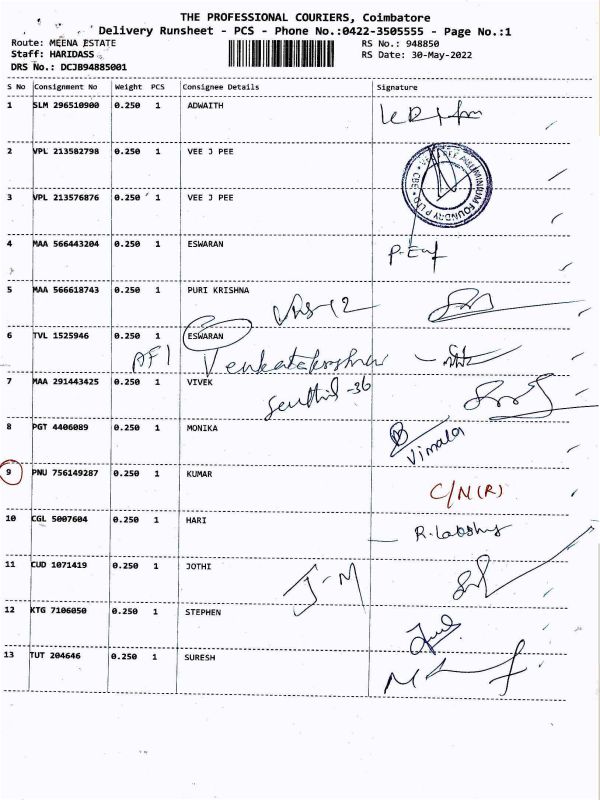 THE PROFESSIONAL COURIERS, Coimbatore
Delivery Runsheet - PCS - Phone No.:0422-3505555 - Page No.:1
Route: MEENA ESTATE
RS No.: 948850
Staff: HARIDASS
RS Date: 30-May-2022
DRS No.: DCJB94885001
S No Consignment No Weight PCS Consignee Details Signature
1 SLM 296510900 0.250 1 ADWAITH
2 VPL 213582798 0.250 1 VEE J PEE
ALUMINIUM FOUNDRY P LTD * CBE *
3 VPL 213576876 0.250 1 VEE J PEE
4 MAA 566443204 0.250 1 ESWARAN
5 MAA 566618743 0.250 1 PURI KRISHNA
6 TVL 1525946 0.250 1 ESWARAN
AF1 Venkatakrishna
7 MAA 291443425 0.250 1 VIVEK
Senthil -36
8 PGT 4406089 0.250 1 MONIKA
Vimala
9 PNU 756149287 0.250 1 KUMAR C/N(R)
10 CGL 5007604 0.250 1 HARI
11 CUD 1071419 0.250 1 JOTHI J-M
12 KTG 7106050 0.250 1 STEPHEN
13 TUT 204646 0.250 1 SURESH